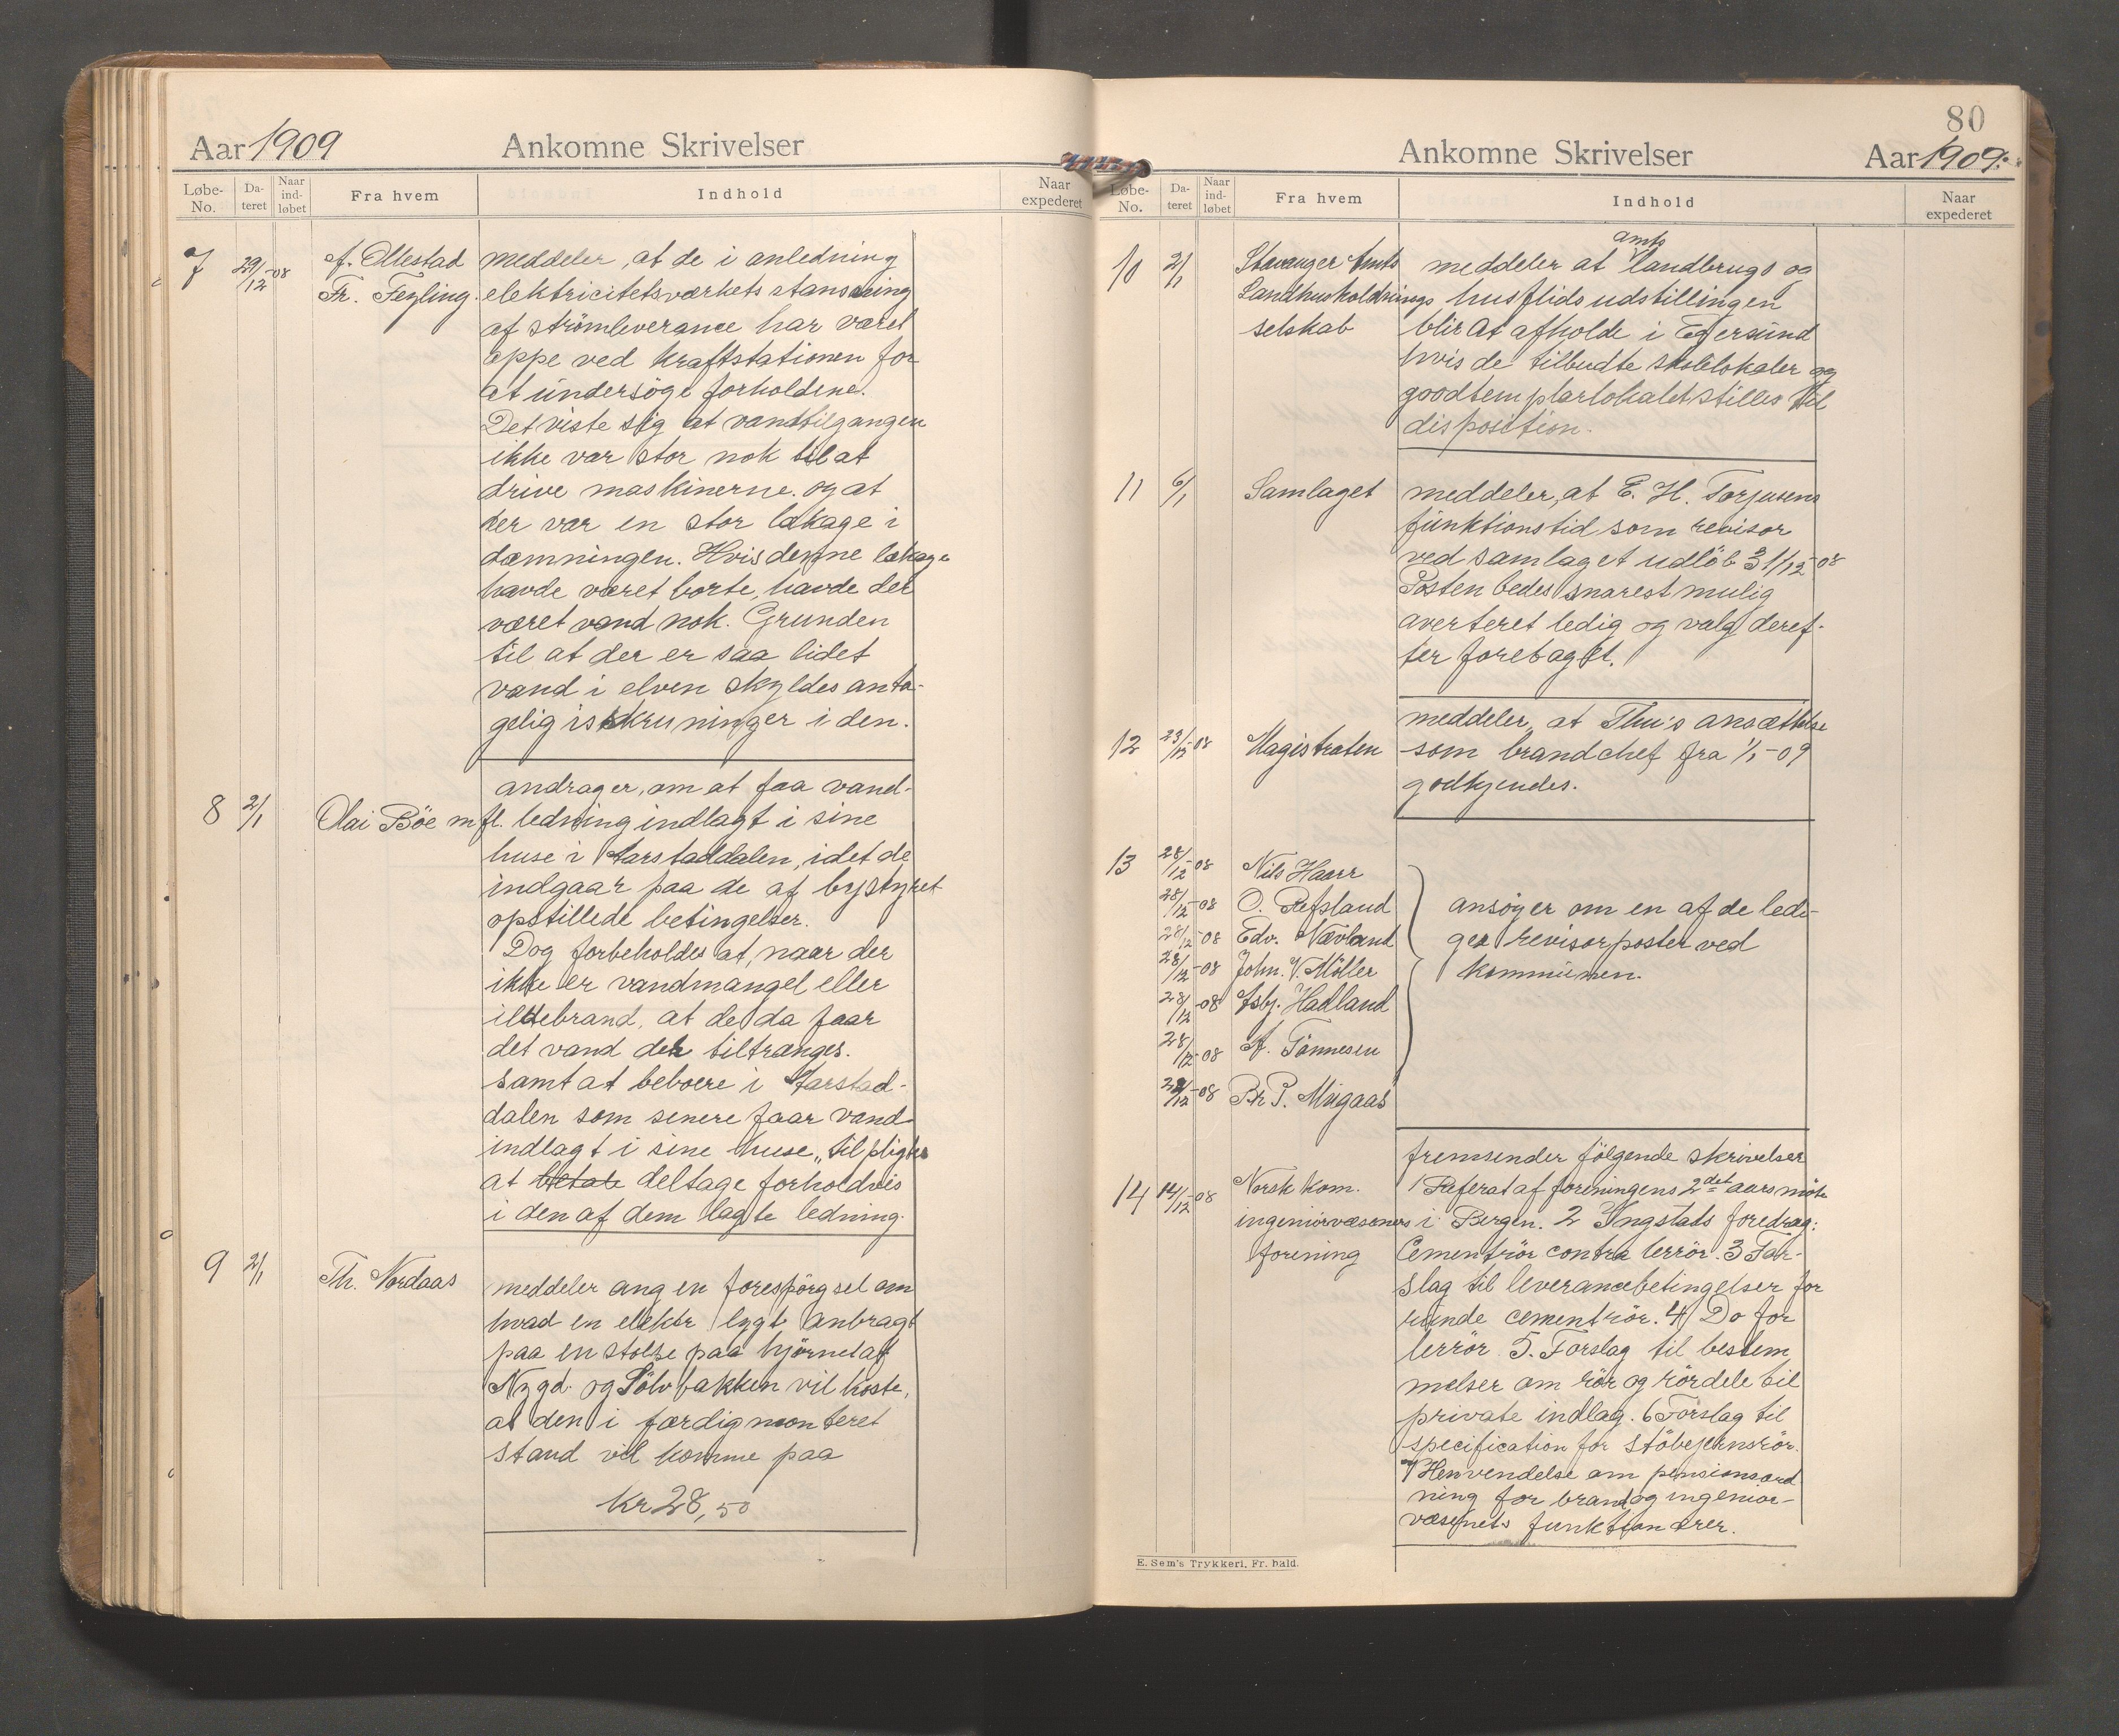 Aar 1909
Ankomne Skrivelser
Løbe-No.
Da-teret
Naar ind-løbet
Fra hvem
Indhold
Naar expederet
7
29/12-08
A. Ollestad
Fr. Feyling.
meddeler, at de i anledning
elektricitetsværkets standsning
af strömleverance har været
oppe ved kraftstationen for
at undersöge forholdene.
Det viste sig at vandtilgangen
ikke var stor nok til at
drive maskinerne. og at
der var en stor lækage i
dæmningen. Hvis denne lækage
havde været borte, havde der
været vand nok. Grunden
til at der er saa lidet
vand i elven skyldes anta-
gelig isskruninger i den.
8
2/1
Olai Böe m fl.
andrager, om at faa vand-
ledning indlagt i sine
huse i Aarstaddalen, idet de
indgaar paa de af bystyret
opstillede betingelser.
Dog forbeholdes at, naar der
ikke er vandmangel eller
ildebrand, at de da faar
det vand der tiltrænges.
samt at beboere i Aarstad-
dalen som senere faar vand
indlagt i sine huse, tilpligtes
at betale deltage forholdvis
i den af dem lagte ledning.
9
2/1
Th. Nordaas
meddeler ang en forespörgsel om
hvad en elektr lygt anbragt
paa en stolpe paa hjörnet af
Nygd. og Sölvbakken vil koste,
at den i færdigmonteret
stand vil komme paa
Kr 28,50
80
Ankomne Skrivelser
Aar 1909.
Løbe-No.
Da-teret
Naar ind-løbet
Fra hvem
Indhold
Naar expederet
10
2/1
Stavanger Amts
Landhusholdnings
selskab
amts
meddeler at landbrugs og
husflidsudstillingen
blir at afholde i Egersund
hvis de tilbudte skolelokaler og
goodtemplarlokalet stilles til
disposition.
11
6/1
Samlaget
meddeler, at E. H. Torjusens
funktionstid som revisor
ved samlaget udlöb 31/12-08
Posten bedes snarest mulig
averteret ledig og valg deref-
ter foretaget.
12
23/12-08
Magistraten
meddeler, at Thu's ansættelse
som brandchef fra 1/1-09
godkjendes.
13
28/12-08 Nils Haarr
28/12-08 O. Refsland
28/12-08 Edv. Nævland
28/12-08 John. V. Möller
28/12-08 Asbj. Hadland
28/12-08 A. Tönnesen
28/12-08 P. Migaas
ansöger om en af de ledi-
ge revisorposter ved
kommunen.
14
14/12-08
Norsk kom.
ingeniörvæseners
forening
fremsender fölgende skrivelser
1 Referat af foreningens 2det aarsmöte
i Bergen. 2 Yngstads foredrag:
Cementrör contra lerrör. 3 For-
slag til leverancebetingelser for
runde cementrör. 4 Do for
lerrör. 5. Forslag til bestem
melser om rör og rördele til
private indlæg. 6 Forslag til
specification for stöbejernsrör.
7 Henvendelse om pensionsord
ning for brand og ingeniör-
væsenets funktionærer.
E. Sem's Trykkeri, Fr. hald.